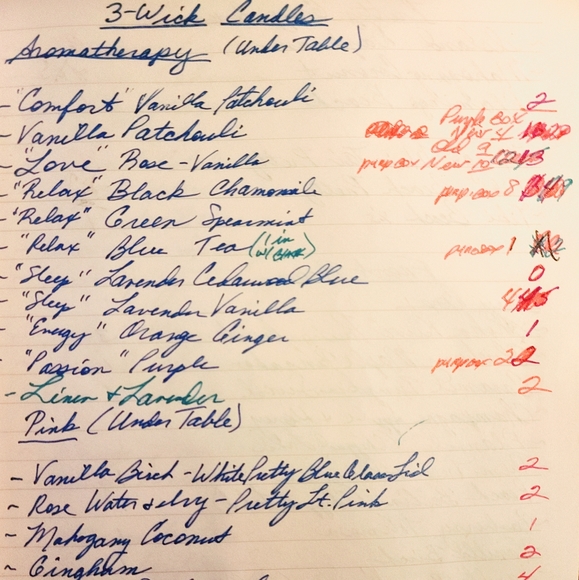 3-Wick Candles
Aromatherapy (Under Table)
- "Comfort" Vanilla Patchouli 2
- Vanilla Patchouli Purple box New 4
- "Love" Rose-Vanilla Old 9 purp box New 10
- "Relax" Black Chamomile purp box 8
- "Relax" Green Spearmint
- "Relax" Blue Tea (1 in w/ Black) purp box 1
- "Sleep" Lavender Cedarwood Blue 0
- "Sleep" Lavender Vanilla 4
- "Energy" Orange Ginger 1
- "Passion" Purple purp box 2
- Linen & Lavender 2
Pink (Under Table)
- Vanilla Birch - White Pretty Blue Glass Lid 2
- Rose Water & Ivy - Pretty Lt. Pink 2
- Mahogany Coconut 1
- Gingham 2
4